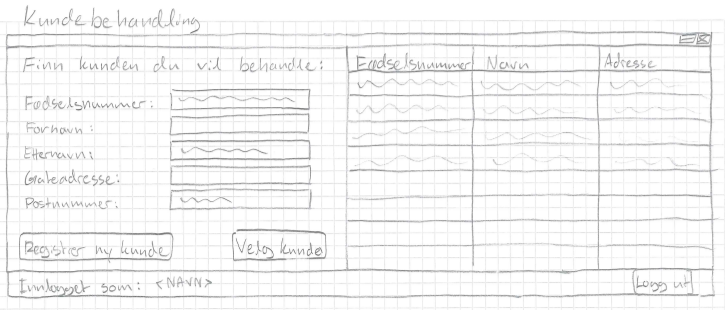 Kundebehandling
Finn kunden du vil behandle:
Fødselsnummer:
Fornavn:
Etternavn:
Gateadresse:
Postnummer:
Registrer ny kunde
Velg kunde
Fødselsnummer Navn Adresse
Innlogget som: <NAVN>
Logg ut